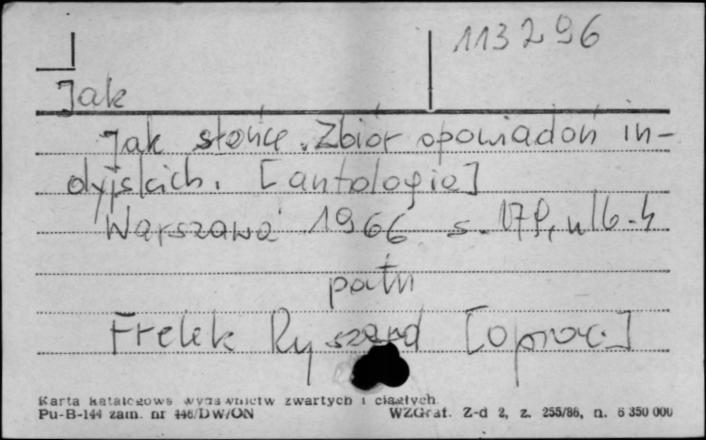 113296
Jak
Jak słońce. Zbiór opowiadań in-
dyjskich. [antologia]
Warszawa 1966 s.
patrz
Frelek Ryszard [oprac.]
Karta katalogowa wydawnictw zwartych i ciągłych
Pu-B-144 zam. nr 446/DW/ON WZGraf. Z-d 2, z. 255/86, n. 6 350 000